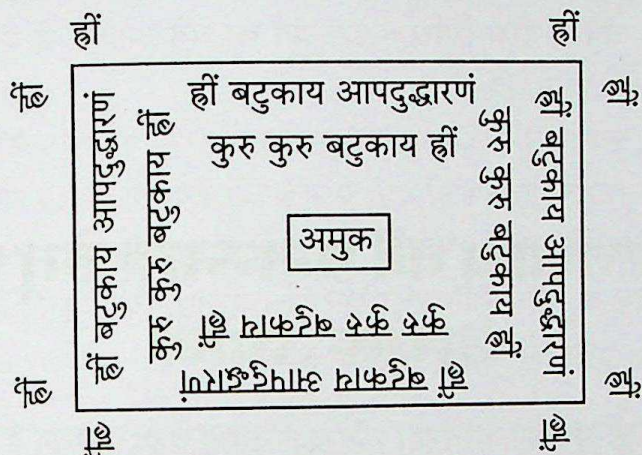 ह्रीं
ह्रीं
ह्रीं
ह्रीं
ह्रीं बटुकाय आपदुद्धारणं
कुरु कुरु बटुकाय ह्रीं
ह्रीं बटुकाय आपदुद्धारणं
कुरु कुरु बटुकाय ह्रीं
अमुक
ह्रीं बटुकाय आपदुद्धारणं
कुरु कुरु बटुकाय ह्रीं
ह्रीं बटुकाय आपदुद्धारणं
कुरु कुरु बटुकाय ह्रीं
ह्रीं
ह्रीं
ह्रीं
ह्रीं